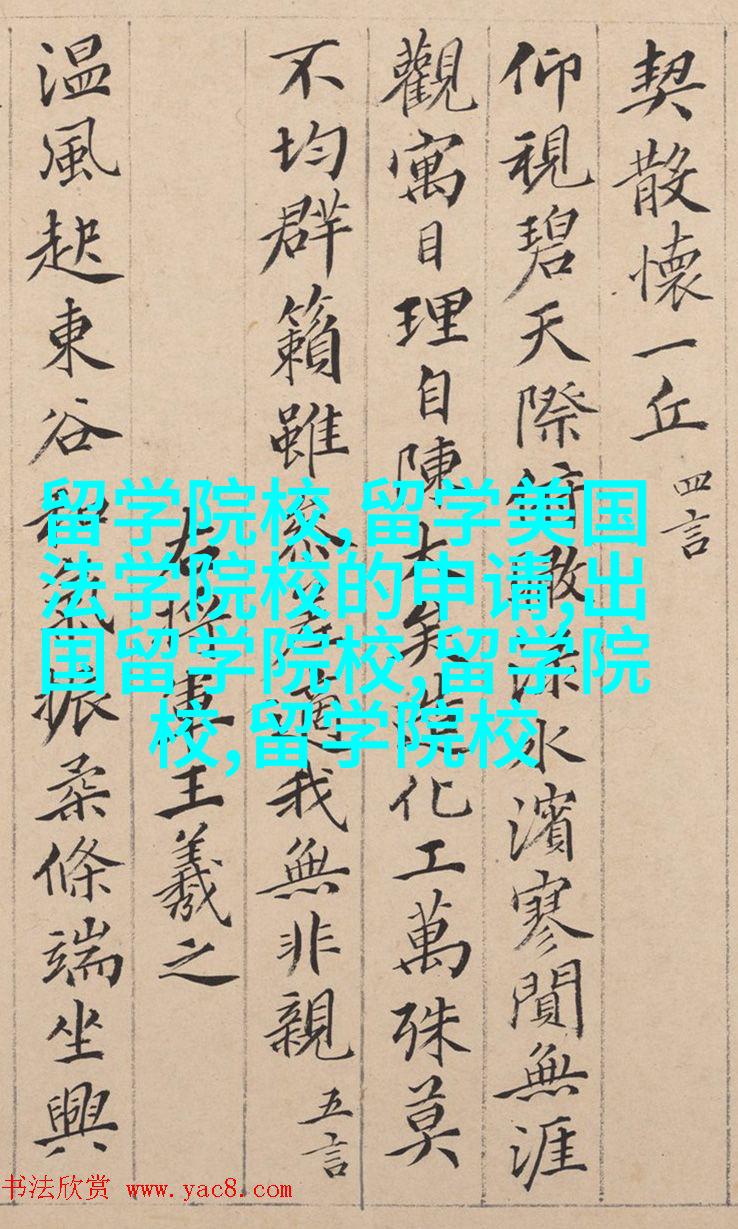 契散懷一丘 四言
仰視碧天際俯瞰淥水濱寥閴無涯
觀寓目理自陳大矣造化工萬殊莫
不均群籟雖參差適我無非親 五言
右將軍王羲之
温風起東谷和氣振柔條端坐興
留学院校,留学美国
法学院校的申请,出
国留学院校,留学院
校,留学院校
书法欣赏 www.yac8.com